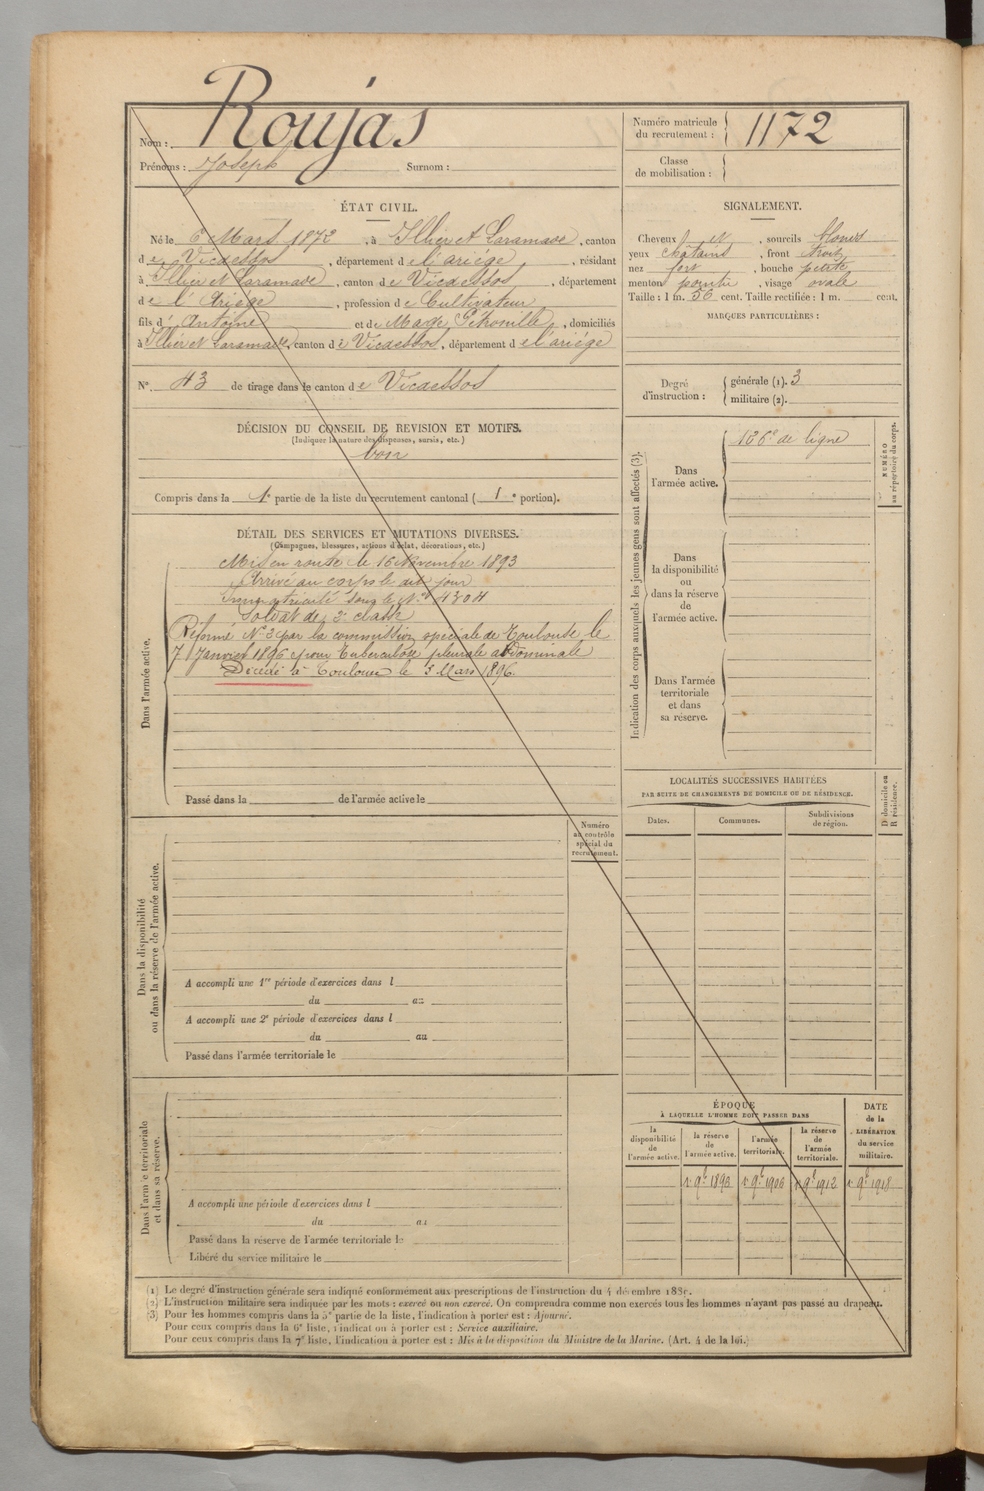 Nom : Roujas
Prénoms : Joseph Surnom :
Numéro matricule du recrutement : 1172
Classe de mobilisation :
ÉTAT CIVIL.
Né le 6 Mars 1872, à Illier et Laramade, canton
de Vicdessos, département de l'ariège, résidant
à Illier et Laramade, canton de Vicdessos, département
de l'Ariège, profession de Cultivateur
fils d'Antoine et de Pétronille, domiciliés
à Illier et Laramade, canton de Vicdessos, département de l'ariège
N° 43 de tirage dans le canton de Vicdessos
SIGNALEMENT.
Cheveux et, sourcils blonds
yeux chatains, front étroit
nez fort, bouche petite
menton pointu, visage ovale
Taille : 1 m. 56 cent. Taille rectifiée : 1 m. cent.
MARQUES PARTICULIÈRES :
Degré d'instruction : générale (1). 3
militaire (2).
DÉCISION DU CONSEIL DE REVISION ET MOTIFS.
(Indiquer la nature des dispenses, sursis, etc.)
bon
Compris dans la 1e partie de la liste du recrutement cantonal ( 1e portion).
DÉTAIL DES SERVICES ET MUTATIONS DIVERSES.
(Campagnes, blessures, actions d'éclat, décorations, etc.)
Dans l'armée active.
Mis en route le 16 Novembre 1893
Arrivé au corps le dit jour
Immatriculé sous le N° 4304
Soldat de 2e classe
Réformé N° 2 par la commission spéciale de Toulouse le
7 Janvier 1896 pour Tuberculose pleurale abdominale
Décédé à Toulouse le 3 Mars 1896.
Passé dans la de l'armée active le
Indication des corps auxquels les jeunes gens sont affectés (3).
Dans l'armée active.
126e de ligne
Dans la disponibilité ou dans la réserve de l'armée active.
Dans l'armée territoriale et dans sa réserve.
NUMÉRO au répertoire du corps.
LOCALITÉS SUCCESSIVES HABITÉES
PAR SUITE DE CHANGEMENTS DE DOMICILE OU DE RÉSIDENCE.
Dates. Communes. Subdivisions de région. D. domicile ou R. résidence.
Dans la disponibilité ou dans la réserve de l'armée active.
Numéro au contrôle spécial du recrutement.
A accompli une 1re période d'exercices dans l
du au
A accompli une 2e période d'exercices dans l
du au
Passé dans l'armée territoriale le
Dans l'armée territoriale et dans sa réserve.
A accompli une période d'exercices dans l
du au
Passé dans la réserve de l'armée territoriale le
Libéré du service militaire le
ÉPOQUE
À LAQUELLE L'HOMME DOIT PASSER DANS
la disponibilité de l'armée active. la réserve de l'armée active. l'armée territoriale. la réserve de l'armée territoriale.
DATE de la LIBÉRATION du service militaire.
1 9bre 1896 1 9bre 1906 1 9bre 1912 1 9bre 1918
(1) Le degré d'instruction générale sera indiqué conformément aux prescriptions de l'instruction du 4 décembre 1889.
(2) L'instruction militaire sera indiquée par les mots : exercé ou non exercé. On comprendra comme non exercés tous les hommes n'ayant pas passé au drapeau.
(3) Pour les hommes compris dans la 5e partie de la liste, l'indication à porter est : Ajourné.
Pour ceux compris dans la 6e liste, l'indication à porter est : Service auxiliaire.
Pour ceux compris dans la 7e liste, l'indication à porter est : Mis à la disposition du Ministre de la Marine. (Art. 4 de la loi.)